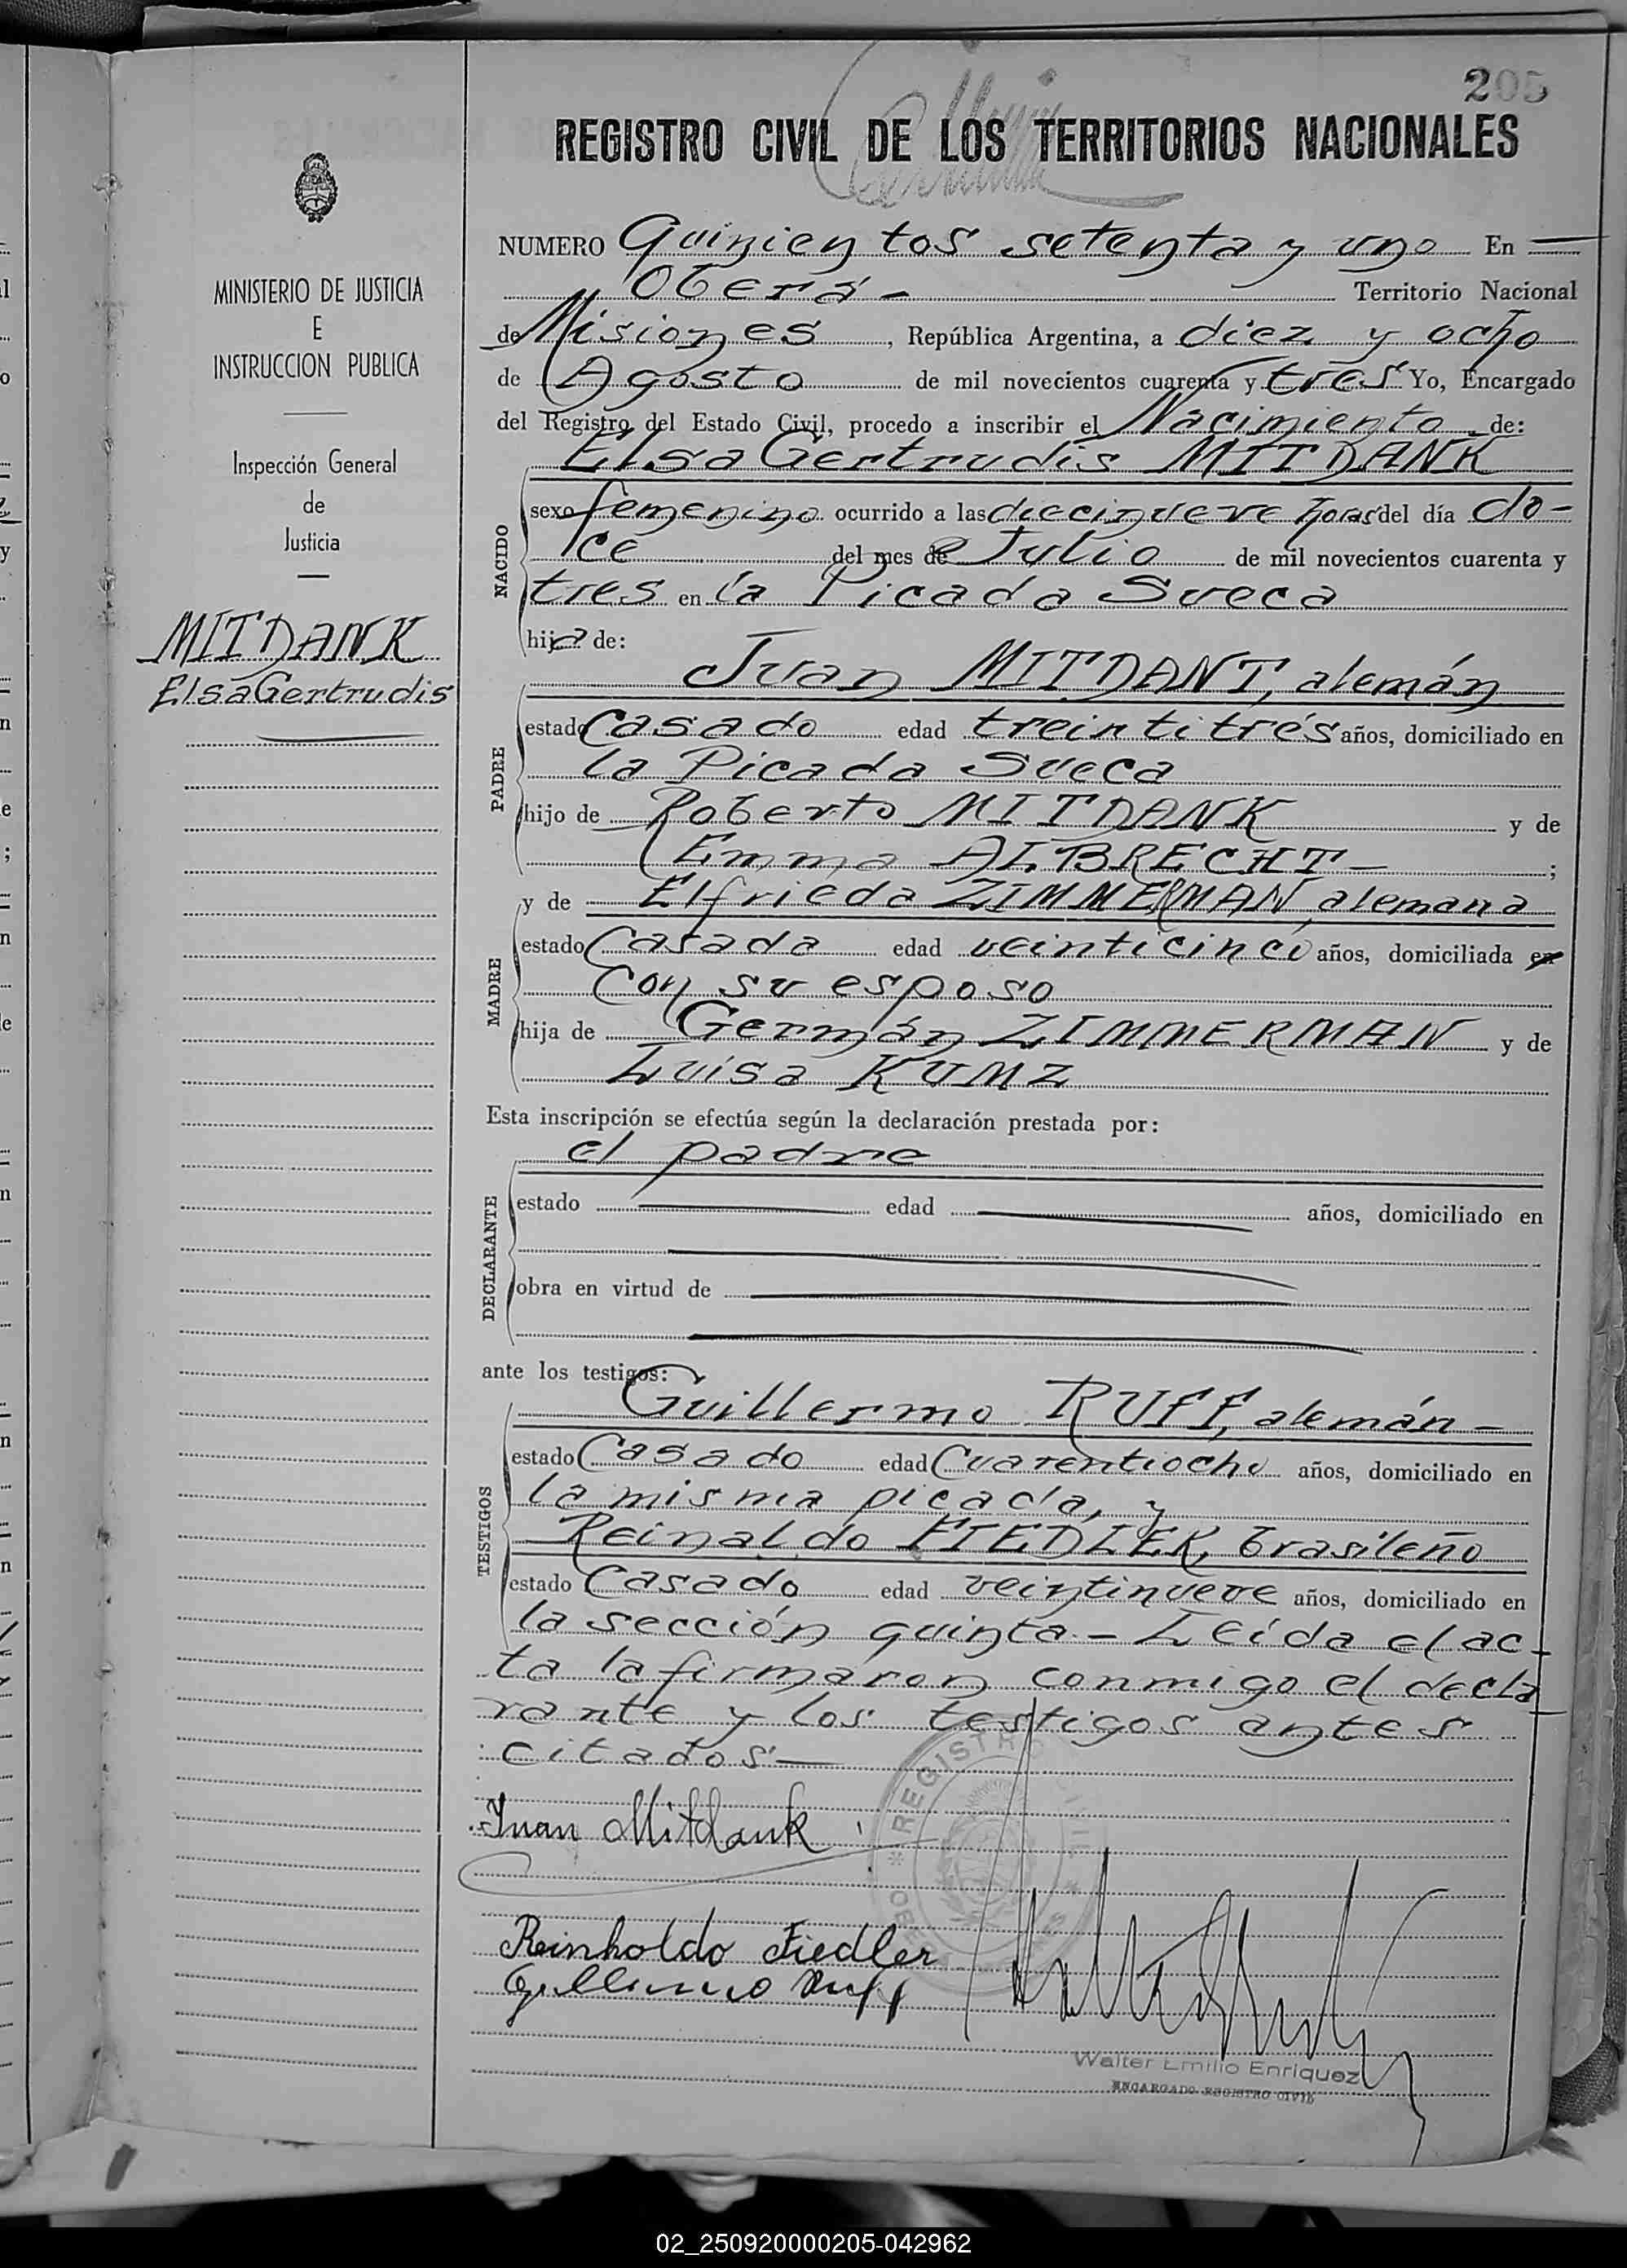 205
REGISTRO CIVIL DE LOS TERRITORIOS NACIONALES
NUMERO Quinientos setenta y uno En
Oberá-
Territorio Nacional
de Misiones, República Argentina, a diez y ocho
de Agosto de mil novecientos cuarenta y tres Yo, Encargado
del Registro del Estado Civil, procedo a inscribir el Nacimiento de:
Elsa Gertrudis MITDANK
NACIDO
sexo femenino ocurrido a las diecinueve horas del día do-
ce del mes de Julio de mil novecientos cuarenta y
tres en la Picada Sueca
hija de:
PADRE
Juan MITDANT, alemán
estado casado edad treintitrés años, domiciliado en
la Picada Sueca
hijo de Roberto MITDANK y de
Emma ALBRECHT- ;
MADRE
y de Elfrieda ZIMMERMAN, alemana
estado casada edad veinticinco años, domiciliada en
con su esposo
hija de Germán ZIMMERMAN y de
Luisa KUMZ
Esta inscripción se efectúa según la declaración prestada por:
DECLARANTE
el padre
estado edad años, domiciliado en
obra en virtud de
ante los testigos:
TESTIGOS
Guillermo RUFF, alemán-
estado casado edad cuarentiocho años, domiciliado en
la misma picada, y
Reinaldo FIEDLER, brasileño
estado casado edad veintinueve años, domiciliado en
la sección quinta- Leída el ac-
ta la firmaron conmigo el decla
rante y los testigos antes
citados-
Juan Mitdank
Reinholdo Fiedler
Guillermo Ruff
REGISTRO CIVIL
Walter Emilio Enriquez
ENCARGADO REGISTRO CIVIL
MINISTERIO DE JUSTICIA
E
INSTRUCCION PUBLICA
Inspección General
de
Justicia
MITDANK
Elsa Gertrudis
02_250920000205-042962